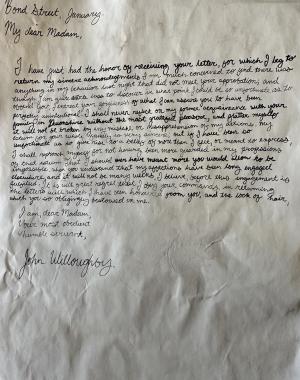 Bond Street, January.
My dear Madam,
I have just had the honor of receiving your letter, for which I beg to
return my sincere acknowledgments. I am much concerned to find there was
anything in my behavior last night that did not meet your approbation; and
though I am quite at a loss to discover in what point I could be so unfortunate as to
offend you, I entreat your forgiveness of what I can assure you to have been
perfectly unintentional. I shall never reflect on my former acquaintance with your
family in Devonshire without the most grateful pleasure, and flatter myself
it will not be broken by any mistake or misapprehension of my actions. My
esteem for your whole family is very sincere; but if I have been so
unfortunate as to give rise to a belief of more than I felt, or meant to express,
I shall reproach myself for not having been more guarded in my professions
of that esteem. That I should ever have meant more you will allow to be
impossible, when you understand that my affections have been long engaged
elsewhere, and it will not be many weeks, I believe, before this engagement is
fulfilled. It is with great regret that I obey your commands in returning
the letters with which I have been honored from you, and the lock of hair,
which you so obligingly bestowed on me.
I am, dear Madam,
Your most obedient
humble servant,
John Willoughby